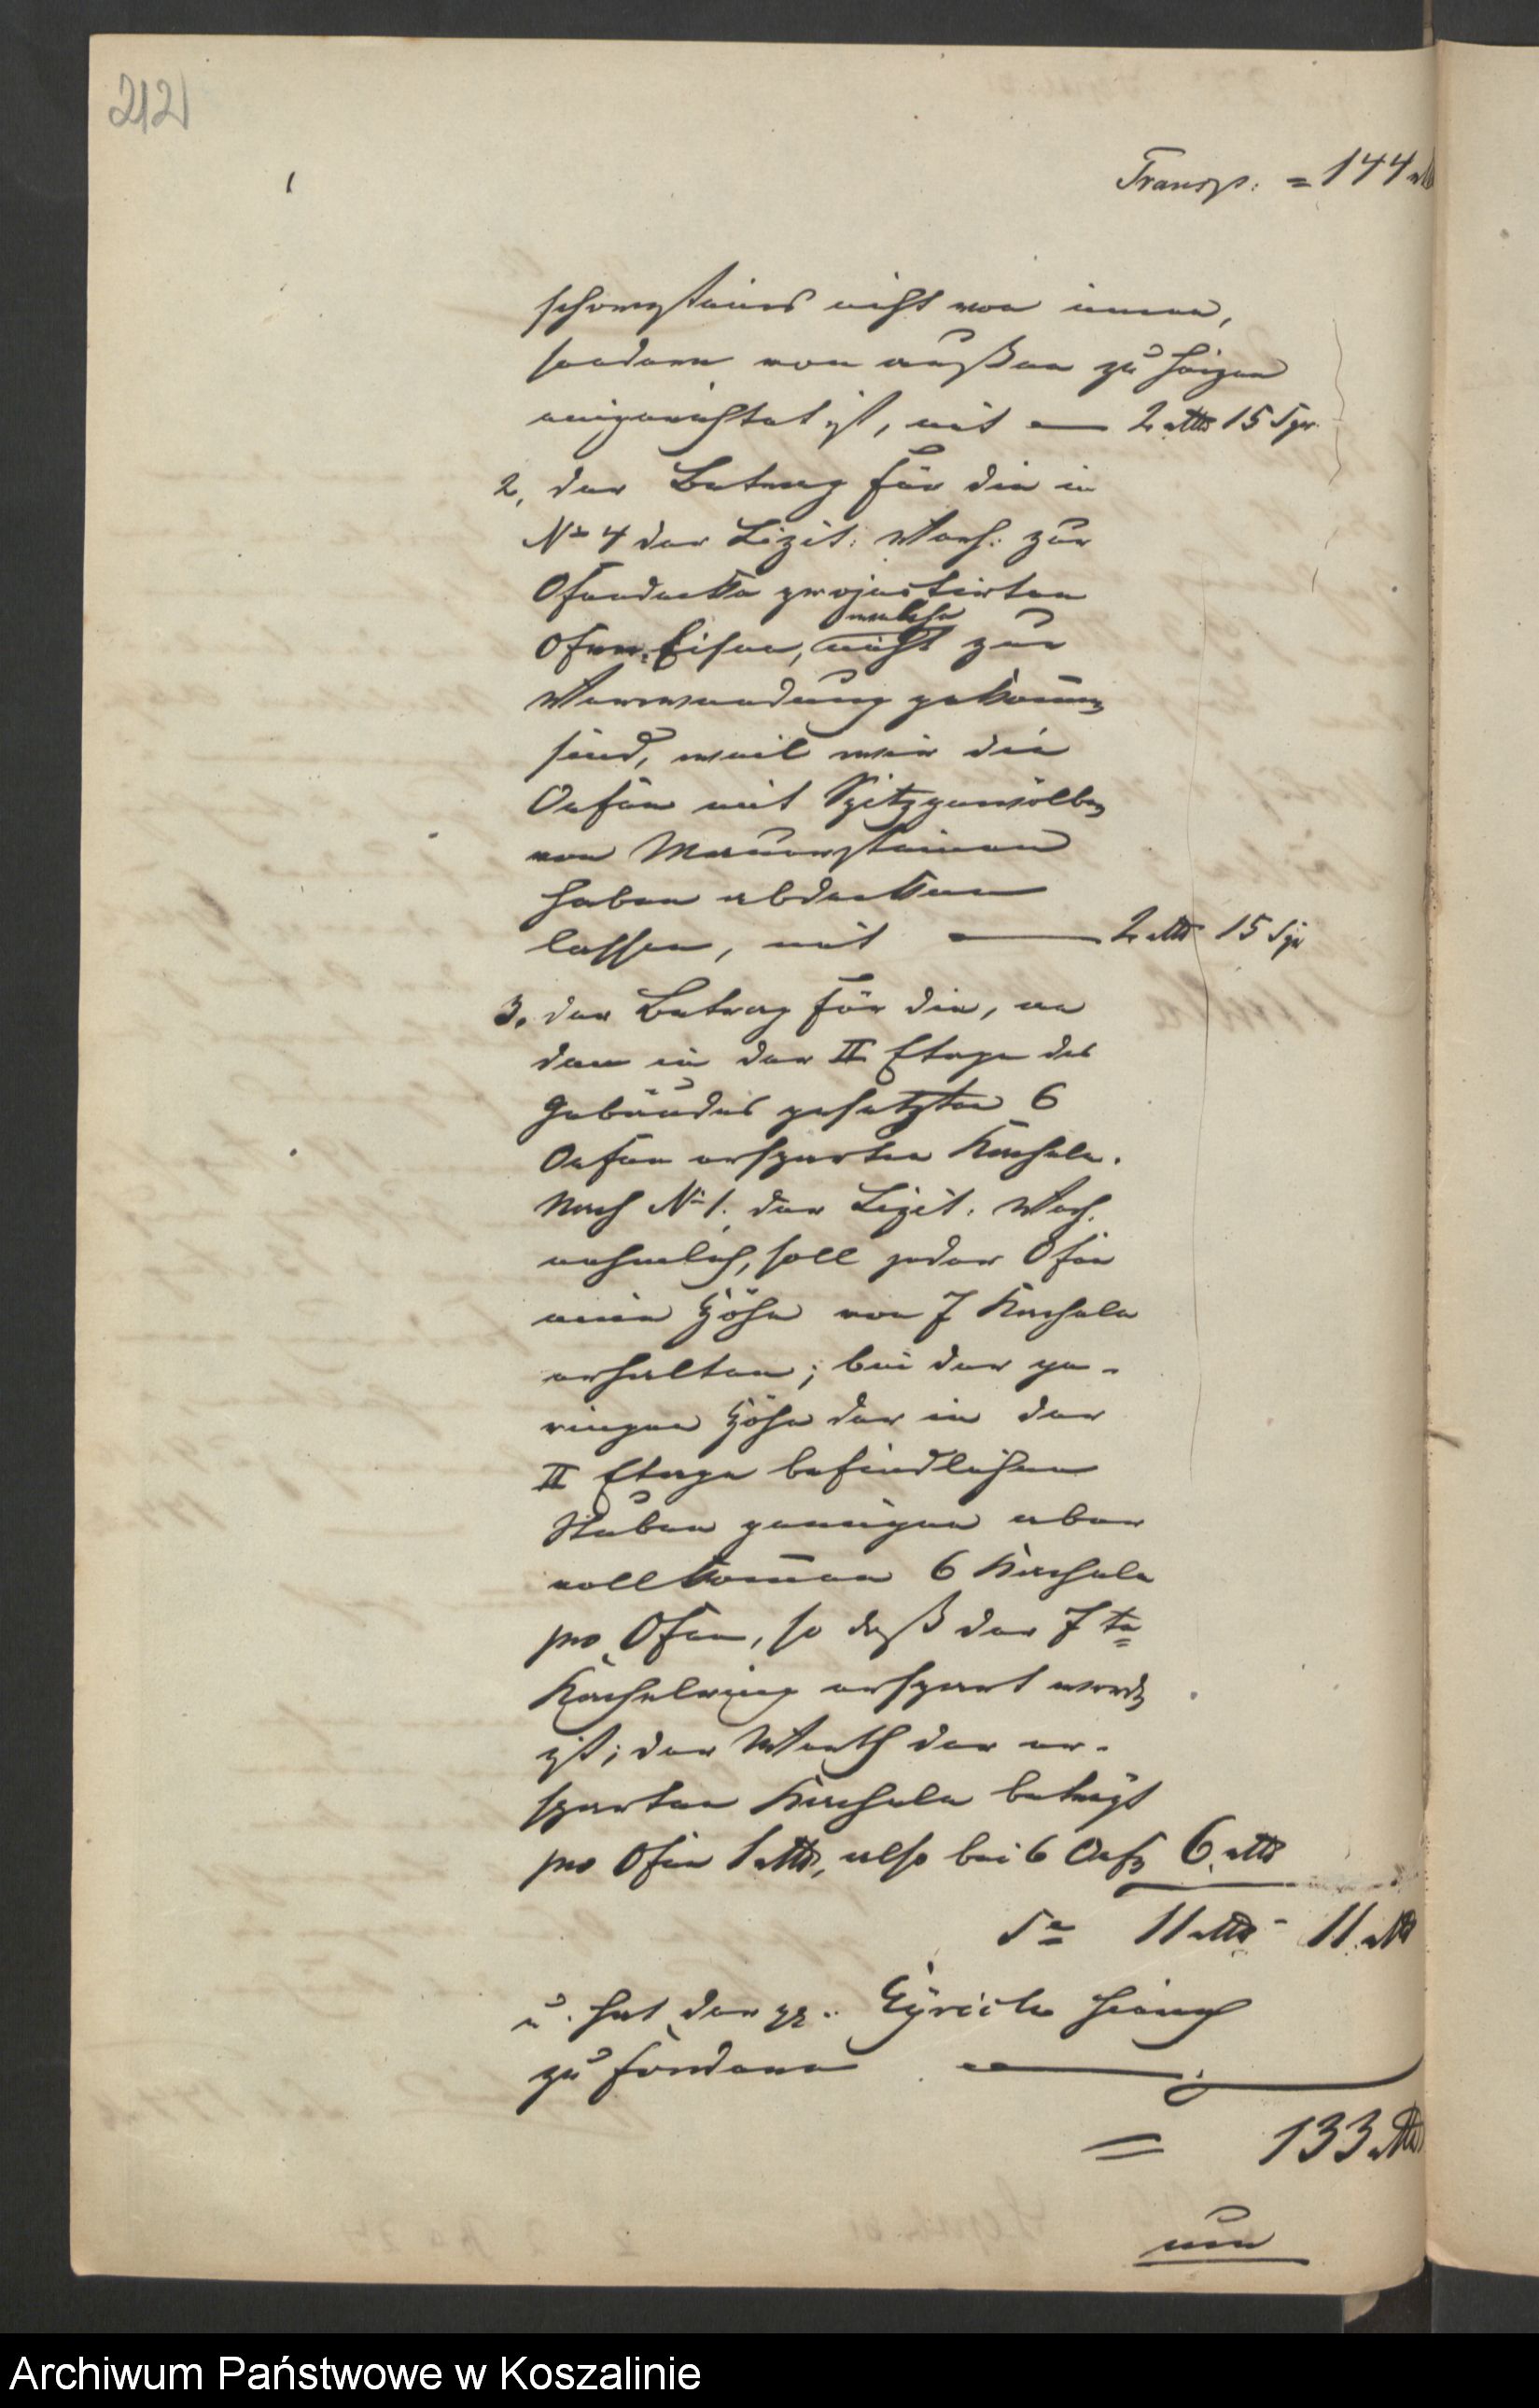 212
Transp: = 144 rtl
schornsteins nicht von innen,
sondern von außen zu heizen
eingerichtet ist, mit — 2 rtl 15 Sgr.
2, der Betrag für die in
No 4 der Lizit: Verh: zur
Ofendecke projectirten
welche
Ofen-Eisen, nicht zur
Verwendung gekommen
sind, weil wir die
Oefen mit Spitzgewölben
von Mauersteinen
haben abdecken
lassen, mit — 2 rtl 15 Sgr
3. der Betrag für die, an
den in der II Etage des
Gebäudes gesetzten 6
Oefen ersparten Kacheln.
Nach No 1. der Lizit. Verh.
nehmlich, soll jeder Ofen
eine Höhe von 7 Kacheln
erhalten; bei der ge-
ringen Höhe der in der
II Etage befindlichen
Stuben genügen aber
vollkommen 6 Kacheln
pro Ofen, so daß der 7te
Kachelring erspart worden
ist; der Werth der er-
sparten Kacheln beträgt
pro Ofen 1 rtl, also bei 6 Oefen 6 rtl
Sa 11 rtl - 11 rtl
u. hat der p. Eyrich hienach
zu fordern —
= 133 rtl
nun
Archiwum Państwowe w Koszalinie